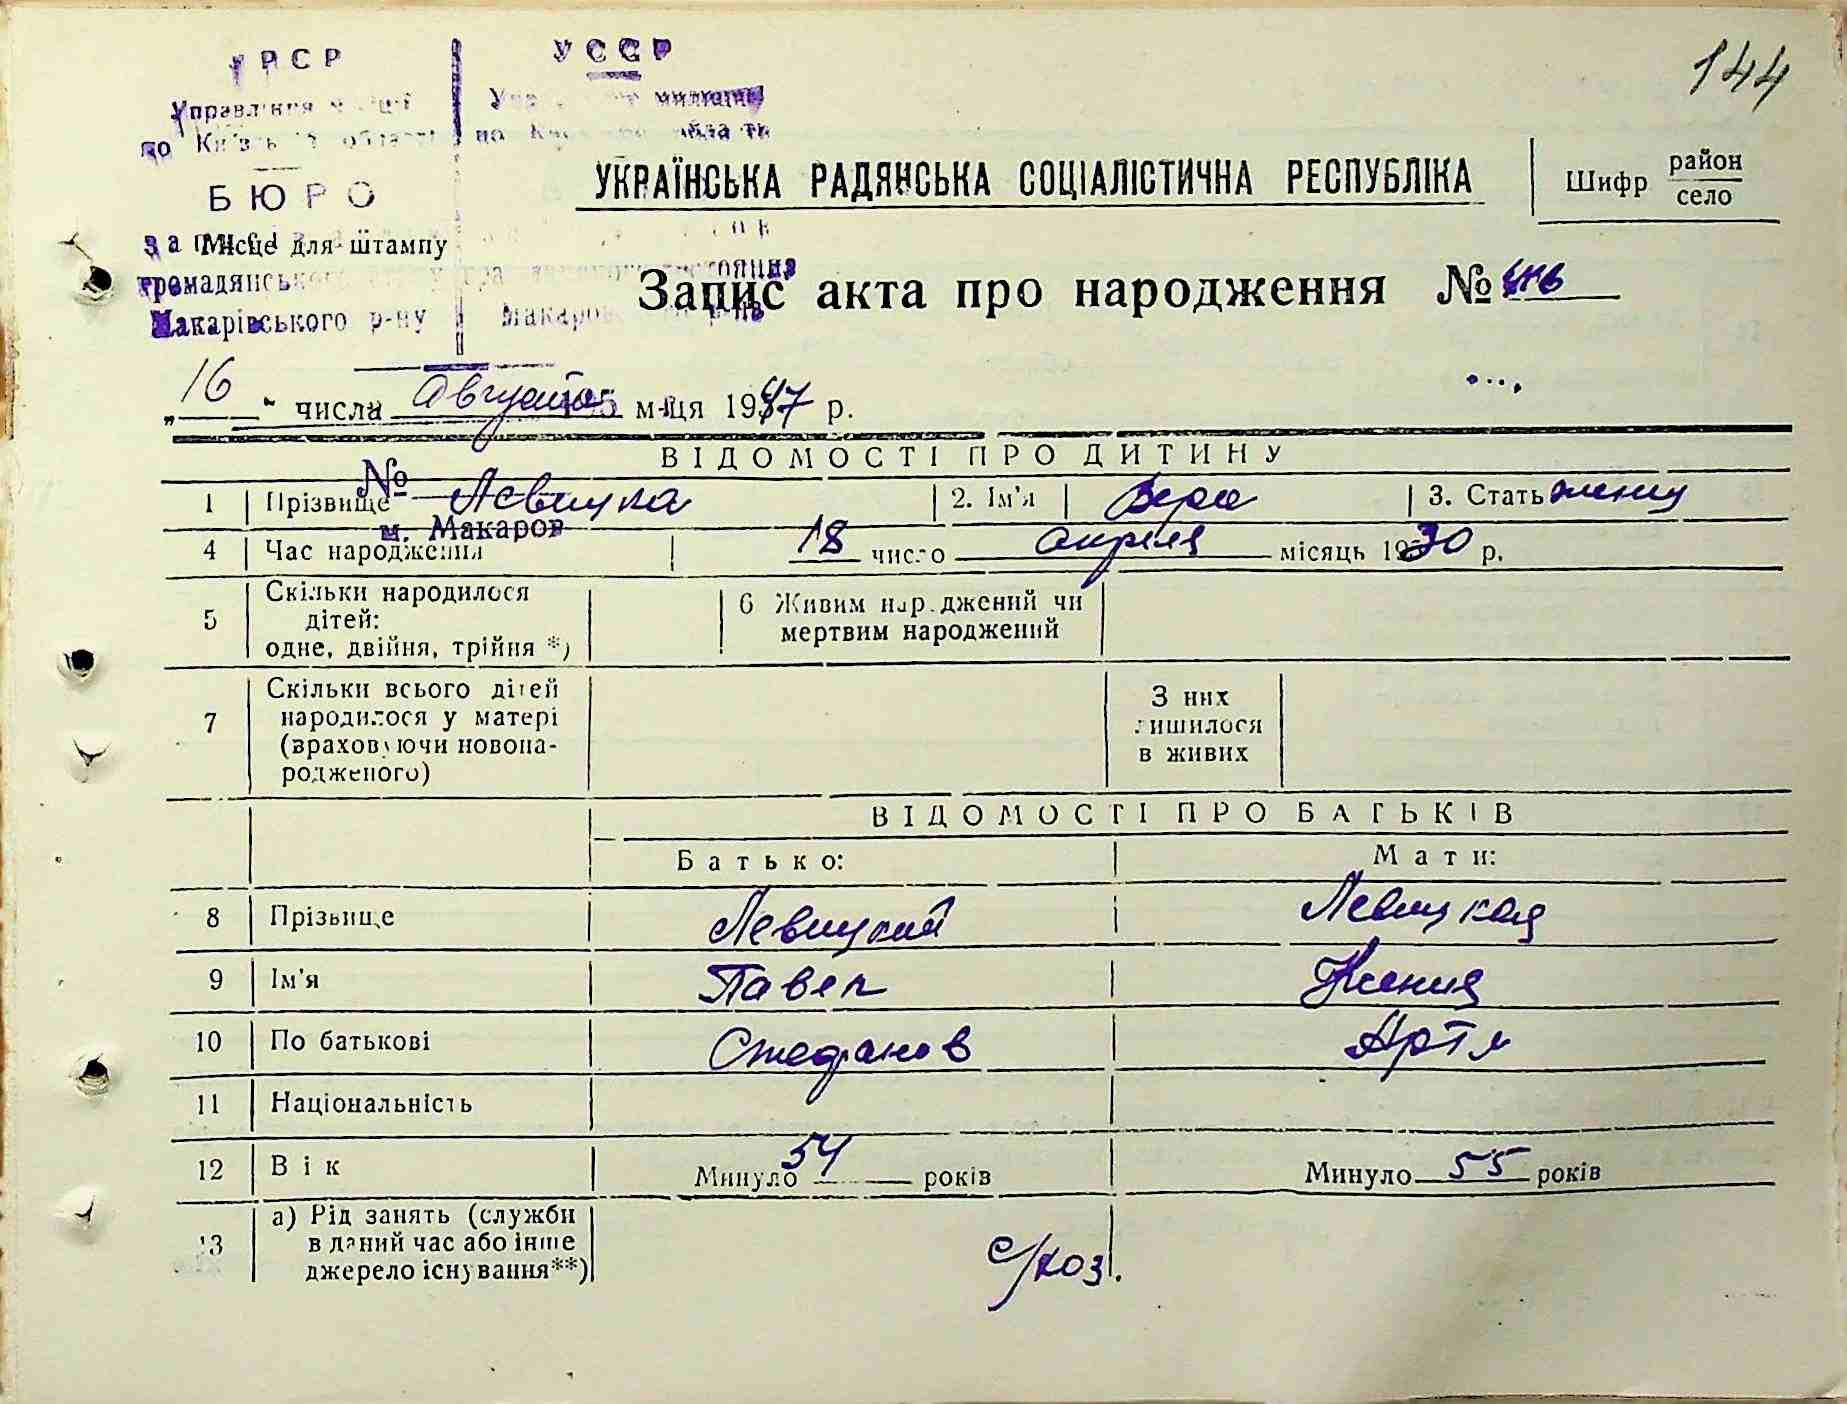 144
УРСР
УССР
Управління міліції
по Київській області
БЮРО
УКРАЇНСЬКА РАДЯНСЬКА СОЦІАЛІСТИЧНА РЕСПУБЛІКА
Шифр район
село
Місце для штампу
громадянського
Макарівського р-ну
Запис акта про народження №
„16“ числа Августа м-ця 1947 р.
ВІДОМОСТІ ПРО ДИТИНУ
№
1 Прізвище Левицка 2. Ім'я Вера 3. Стать женщ
м. Макаров
4 Час народження 18 число апреля місяць 1930 р.
5 Скільки народилося дітей: одне, двійня, трійня *)
6 Живим народжений чи мертвим народжений
7 Скільки всього дітей народилося у матері (враховуючи новонародженого)
З них лишилося в живих
ВІДОМОСТІ ПРО БАТЬКІВ
Батько: Мати:
8 Прізвище Левицкий Левицкая
9 Ім'я Павел Ксения
10 По батькові Стефанов Артем
11 Національність
12 Вік Минуло 54 років Минуло 55 років
13 а) Рід занять (служби в даний час або інше джерело існування**)
с/хоз.